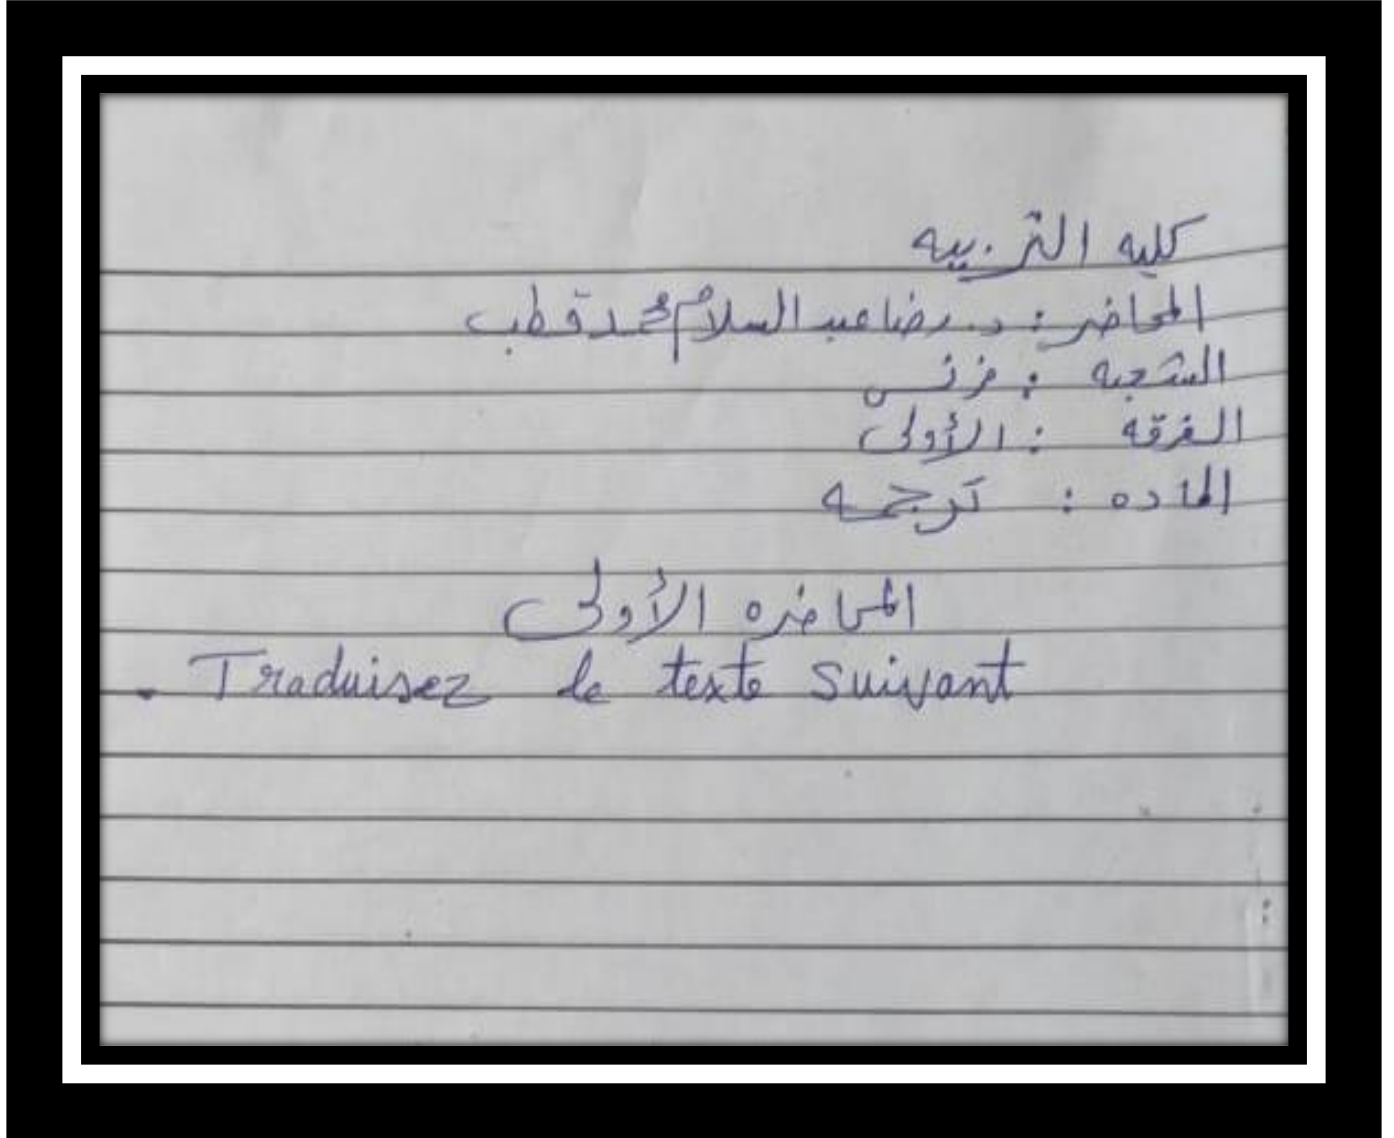 كليه التربيه
المحاضر : د. رضا عبد السلام محمد قطب
الشعبه : فرنسى
الفرقه : الأولى
الماده : ترجمه
المحاضره الأولى
. Traduisez le texte suivant